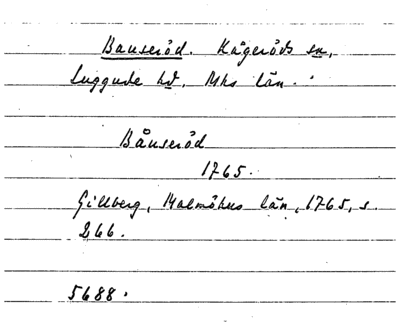 Bauseröd. Kågeröds sn,
Luggude hd, Mhs län.
Båuseröd
1765.
Gillberg, Malmöhus län, 1765, s.
266.
5688.